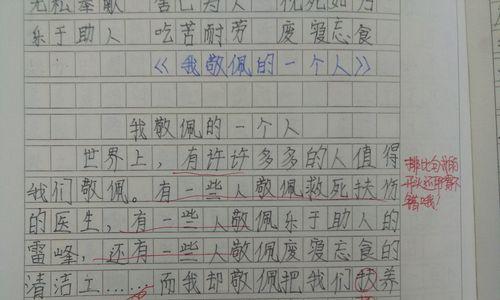 无私奉献 舍己为人 视死如归
乐于助人 吃苦耐劳 废寝忘食
《我敬佩的一个人》
我敬佩的一个人
世界上，有许许多多的人值得
我们敬佩。有一些人敬佩救死扶伤
的医生，有一些人敬佩乐于助人的
雷锋，还有一些人敬佩废寝忘食的
清洁工……而我却敬佩把我们扶养
排比句式的
开头还用得不
错哦！